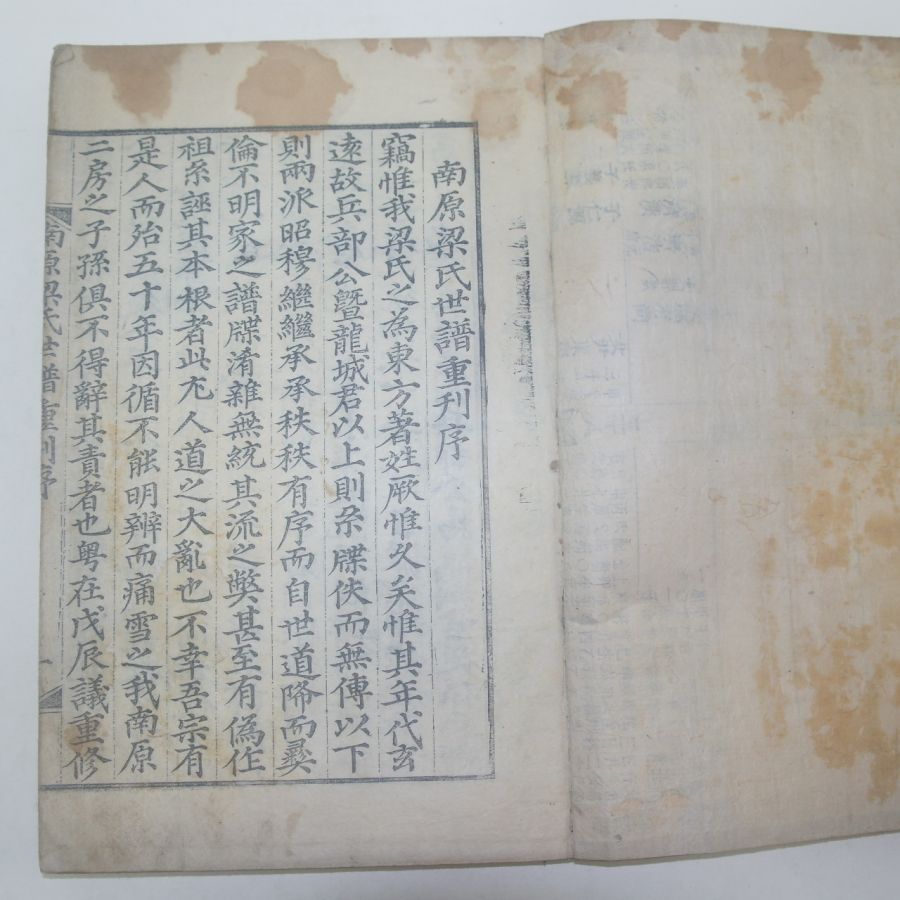 南原梁氏世譜重刊序
竊惟我梁氏之為東方著姓厥惟久矣惟其年代玄
遠故兵部公曁龍城君以上則系牒佚而無傳以下
則兩派昭穆繼繼承承秩秩有序而自世道降而彛
倫不明家之譜牒淆雜無統其流之弊甚至有僞作
祖系誣其本根者此尤人道之大亂也不幸吾宗有
是人而殆五十年因循不能明辨而痛雪之我南原
二房之子孫俱不得辭其責者也粤在戊辰議重修
南原梁氏世譜重刊序
一